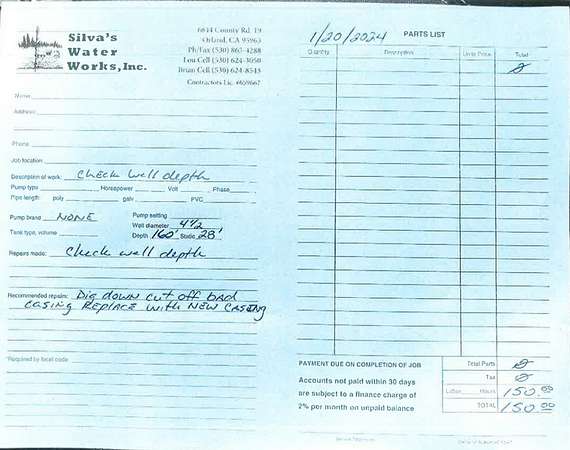 Silva's
Water
Works, Inc.
6644 County Rd. 19
Orland, CA 95963
Ph/Fax (530) 865-4288
Lou Cell (530) 624-3050
Brian Cell (530) 624-8543
Contractors Lic. #659667
Name
Address
Phone
Job location
Description of work: Check well depth
Pump type Horsepower Volt Phase
Pipe length: poly galv PVC
Pump brand NONE
Pump setting
Well diameter 4 1/2
Tank type, volume
Depth 160' Static 28'
Repairs made: Check well depth
Recommended repairs: Dig down cut off bad
casing Replace with New Casing
*Required by local code
1/20/2024 PARTS LIST
Quantity Description Unit Price Total
0
PAYMENT DUE ON COMPLETION OF JOB
Accounts not paid within 30 days
are subject to a finance charge of
2% per month on unpaid balance
Total Parts 0
Tax 0
Labor Hours 150.00
TOTAL 150.00